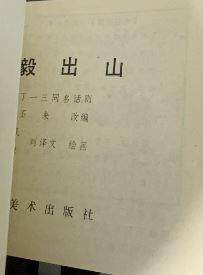 毅出山
丁一三同名话剧
改编
刘泽文 绘画
美术出版社